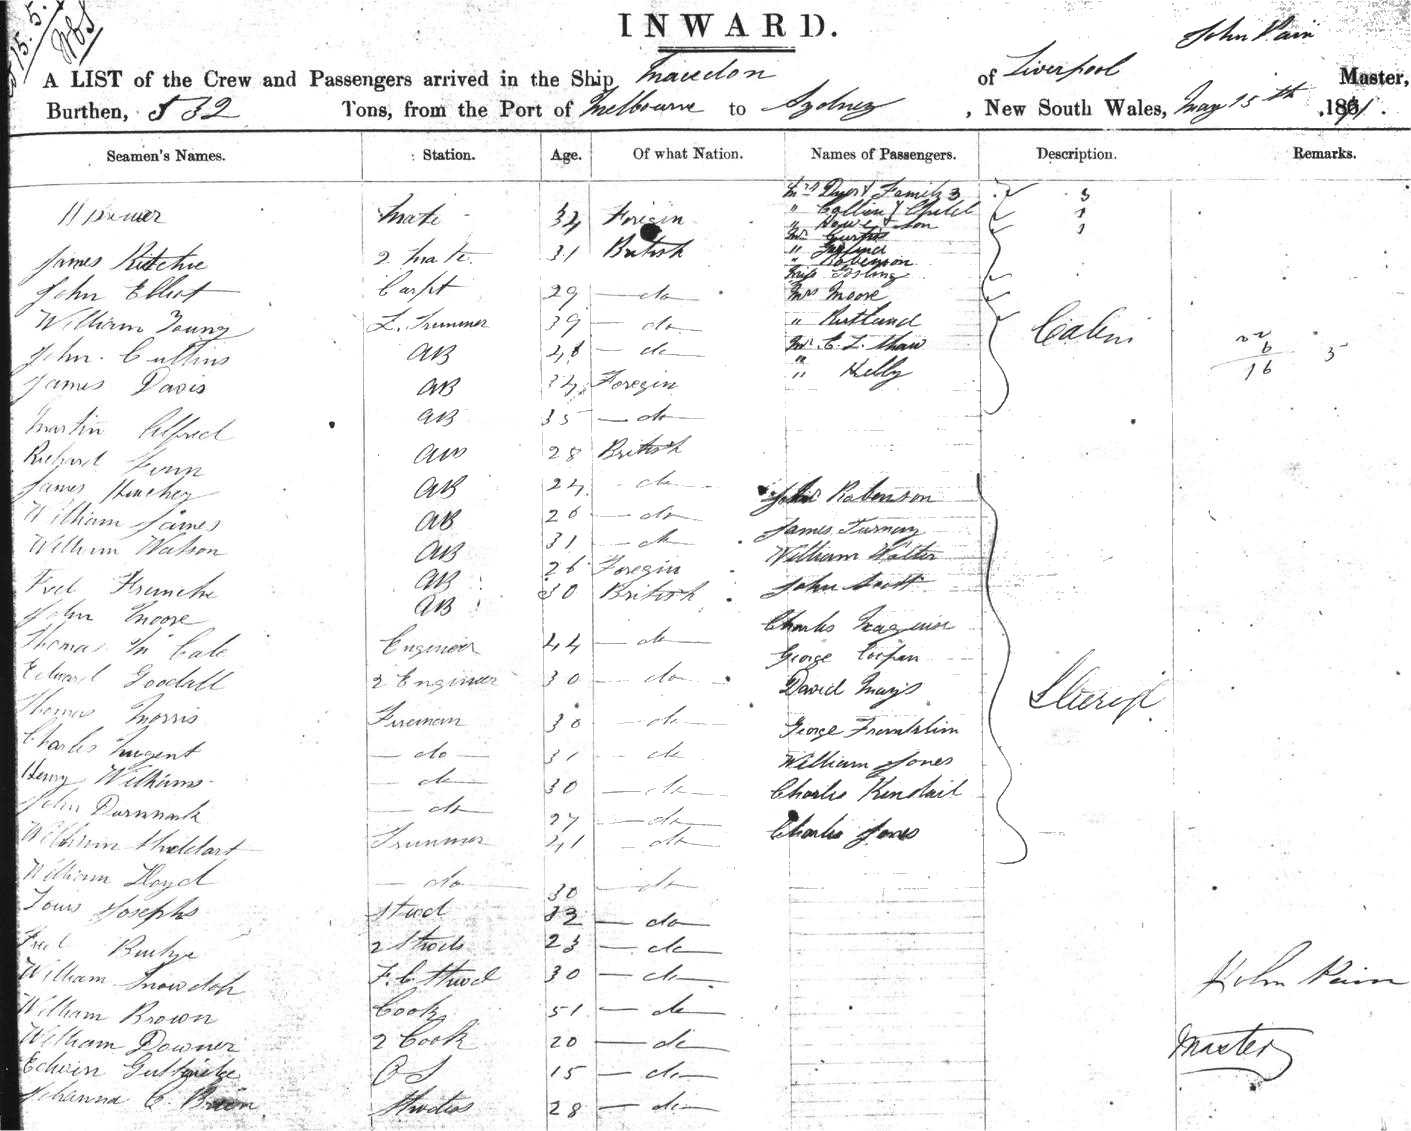 15. 5.
INWARD.
John Pain
A LIST of the Crew and Passengers arrived in the Ship of Liverpool Master,
Burthen, 532 Tons, from the Port of Melbourne to Sydney, New South Wales, May 15th 1861.
Seamen's Names. Station. Age. Of what Nation. Names of Passengers. Description. Remarks.
Mrs Dyer & Family 3 3
" Collin & Child 1
Mate 34 Foregin " Howe & son 1
James Ritchie 2 Mate 31 British " Robenson
Miss Gosling
John Elliot Carpt 29 — do — Mrs Moore
William Young L. Trimmer 39 — do — " Rutland Cabin
John Cullins AB 46 — do — Mr C. L. Shaw 22 6 5
James Davis AB 34 Foregin " Kelly 16
Martin Alfred AB 35 — do —
Richard Finn AB 28 British
James Hinchey AB 24 — do — John Robenson
William James AB 26 — do — James Turney
William Watson AB 31 — do William Walter
Fred AB 26 Foregin John Scott
John Moore AB 30 British
Thomas Mc Cale Engineer 44 — do — Charles
George
Edward Goodall 2 Engineer 30 — do — David Mays Steerige
Thomas Morris Fireman 30 — do — George Franklin
Charles Nugent — do — 31 — do William Jones
Henry Williams — do — 30 — do — Charles Kendail
John — do — 27 — do Charles Jones
William Stoddart Trimmer 41 — do
William Lloyd — do — 30 — do
Louis Josephs Stwd 32 — do —
Fred 2 Stwds 23 — do —
William Snowdon F. C. Stwd 30 — do — John Pain
William Brown Cook 51 — do —
William Downer 2 Cook 20 — do — Master
Edwin OS 15 — do —
Johanna C. Stwdss 28 — do —